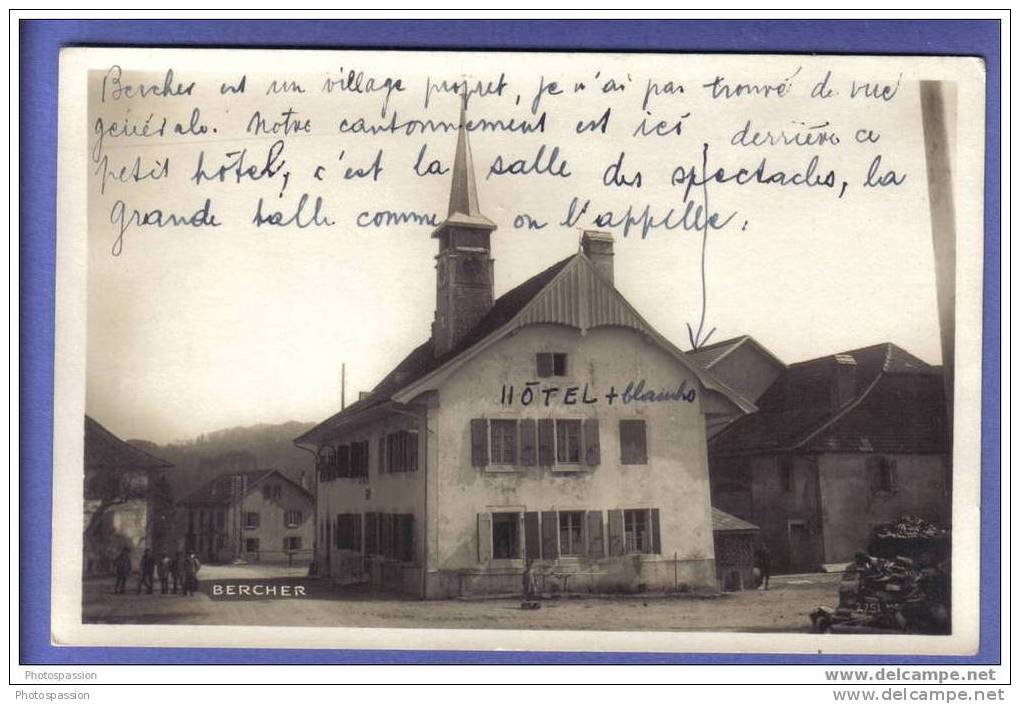 Bercher est un village propret, je n'ai pas trouvé de vue
générale. Notre cantonnement est ici derrière ce
petit hôtel, c'est la salle des spectacles, la
grande salle comme on l'appelle.
HÔTEL +
BERCHER
Photospassion
www.delcampe.net
Photospassion
www.delcampe.net